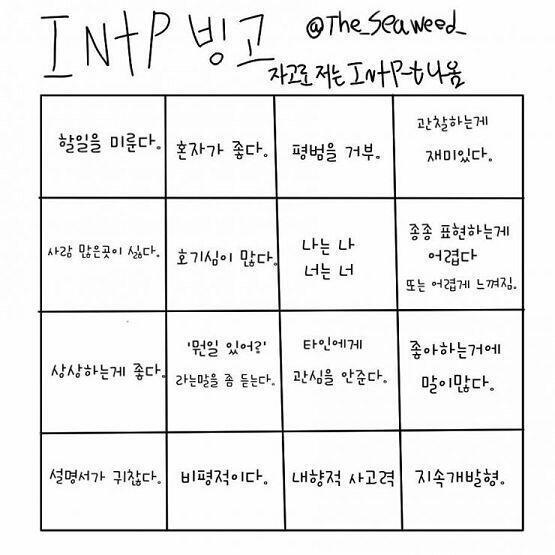 INtP 빙고 @The_Seaweed_
자고로 저는 INtP-t 나옴
할일을 미룬다.
혼자가 좋다.
평범을 거부.
관찰하는게
재미있다.
사람 많은곳이 싫다.
호기심이 많다.
나는 나
너는 너
종종 표현하는게
어렵다
또는 어렵게 느껴짐.
상상하는게 좋다.
'뭔일 있어?'
라는말을 좀 듣는다.
타인에게
관심을 안준다.
좋아하는거에
말이많다.
설명서가 귀찮다.
비평적이다.
내향적 사고력
지속개발형.